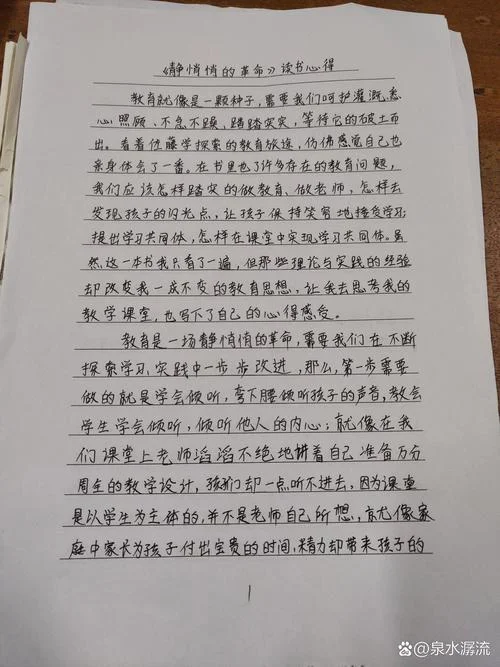 《静悄悄的革命》读书心得
教育就像是一颗种子,需要我们呵护灌溉,悉
心照顾、不急不躁,踏踏实实,等待它的破土而
出。看着佐藤学探索的教育旅途,仿佛感觉自己也
亲身体会了一番。在书里也了许多存在的教育问题,
我们应该怎样踏实的做教育、做老师,怎样去
发现孩子的闪光点,让孩子保持笑容地接受学习;
提出学习共同体,怎样在课堂中实现学习共同体。虽
然这一本书我只看了一遍,但那些理论与实践的经验
却改变我一成不变的教育思想,让我去思考我的
教学课堂,也写下了自己的心得感受。
教育是一场静悄悄的革命,需要我们在不断
探索学习、实践中一步步改进,那么,第一步需要
做的就是学会倾听,弯下腰倾听孩子的声音,教会
学生学会倾听,倾听他人的内心;就像在我
们课堂上老师滔滔不绝地讲着自己准备万分
周全的教学设计,孩子们却一点听不进去,因为课堂
是以学生为主体的,并不是老师自己所想,就像家
庭中家长为孩子付出宝贵的时间、精力却带来孩子的
1
百家号/泉水潺流